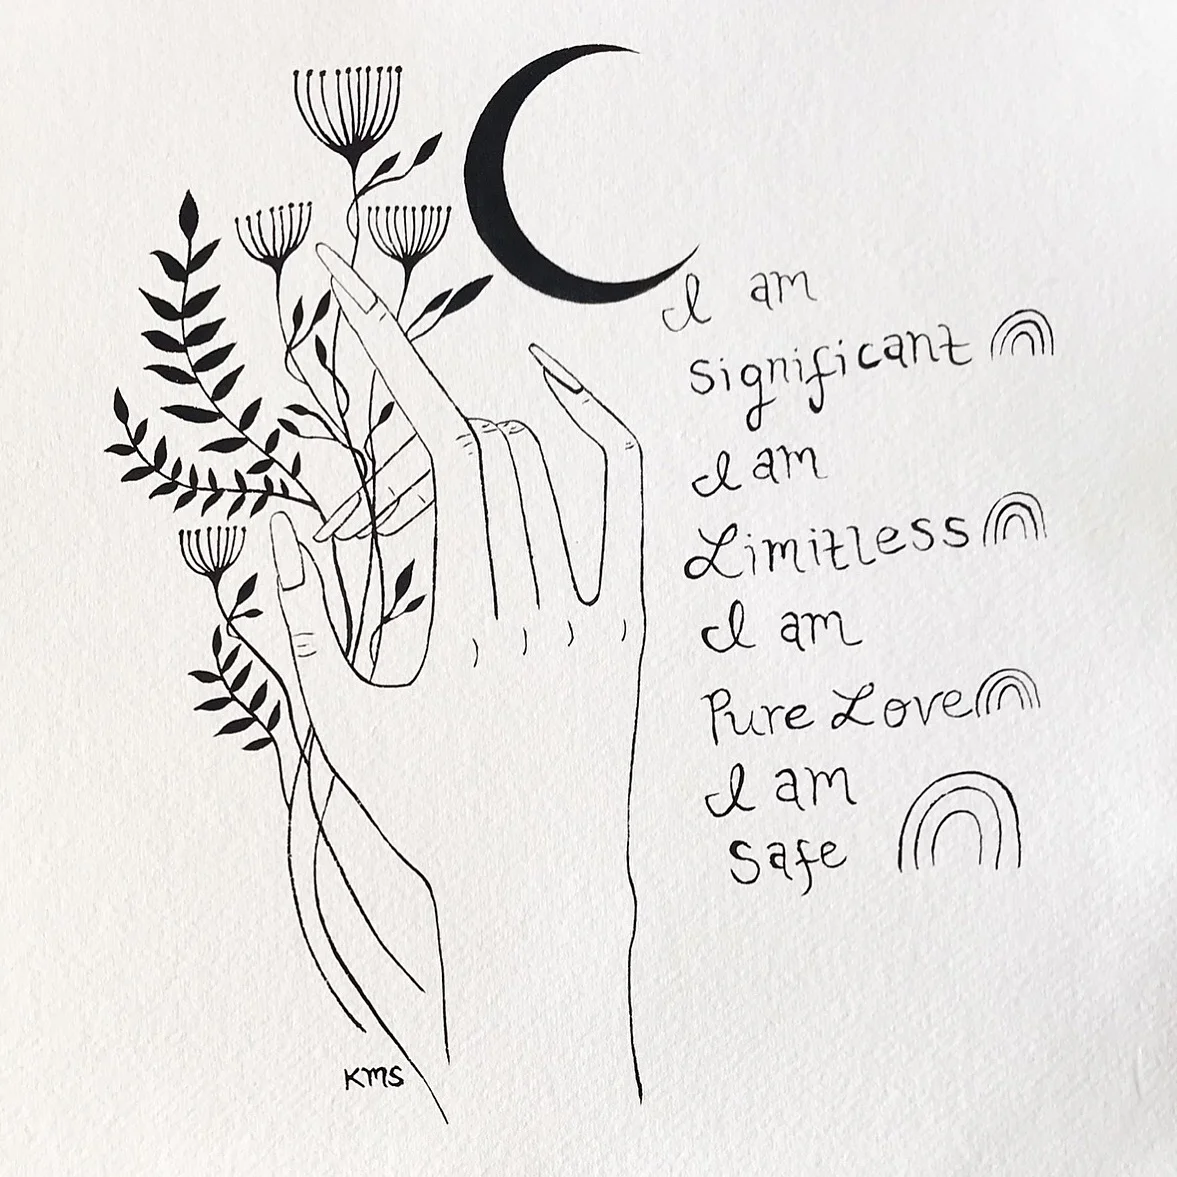 I am
Significant
I am
Limitless
I am
Pure Love
I am
Safe
KMS